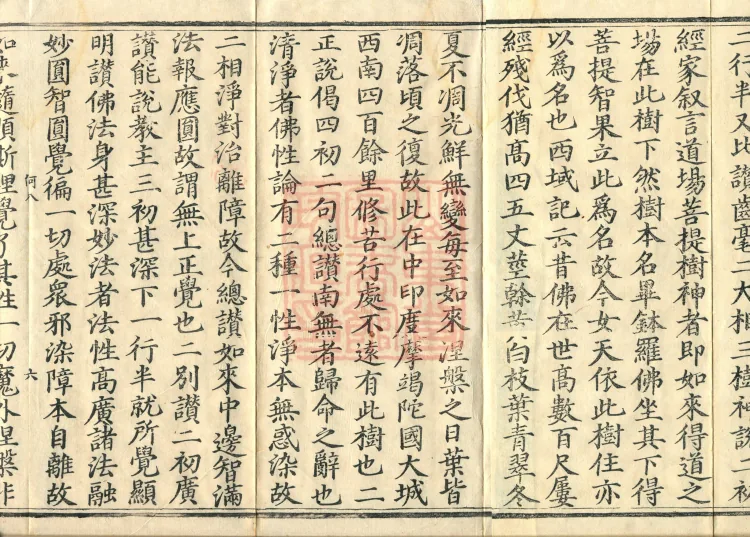 二行半又比讚齒毫二大相三樹神說二初
經家叙言道場菩提樹神者即如來得道之
場在此樹下然樹本名畢鉢羅佛坐其下得
菩提智果立此爲名故今女天依此樹住亦
以爲名也西域記云昔佛在世高數百尺屢
經殘伐猶高四五丈莖幹黃白枝葉青翠冬
夏不凋光鮮無變每至如來涅槃之日葉皆
凋落頃之復故此在中印度摩竭陀國大城
西南四百餘里修苦行處不遠有此樹也二
正說偈四初二句總讚南無者歸命之辭也
清淨者佛性論有二種一性淨本無惑染故
二相淨對治離障故今總讚如來中邊智滿
法報應圓故謂無上正覺也二別讚二初廣
讚能說教主三初甚深下一行半就所覺顯
明讚佛法身甚深妙法者法性高廣諸法融
妙圓智圓覺徧一切處衆邪染障本自離故
何八 六
隨順斯理覺了其性一切魔外涅槃非